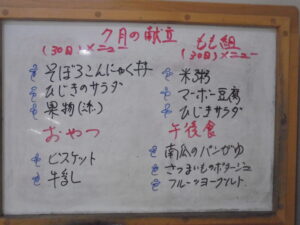 7月の献立
(30日)メニュー
そぼろこんにゃく丼
ひじきのサラダ
果物(   )
おやつ
ビスケット
牛乳
もも組
(30日)メニュー
米粥
マーボー豆腐
ひじきサラダ
午後食
南瓜のパンがゆ
さつまいものポタージュ
フルーツヨーグルト